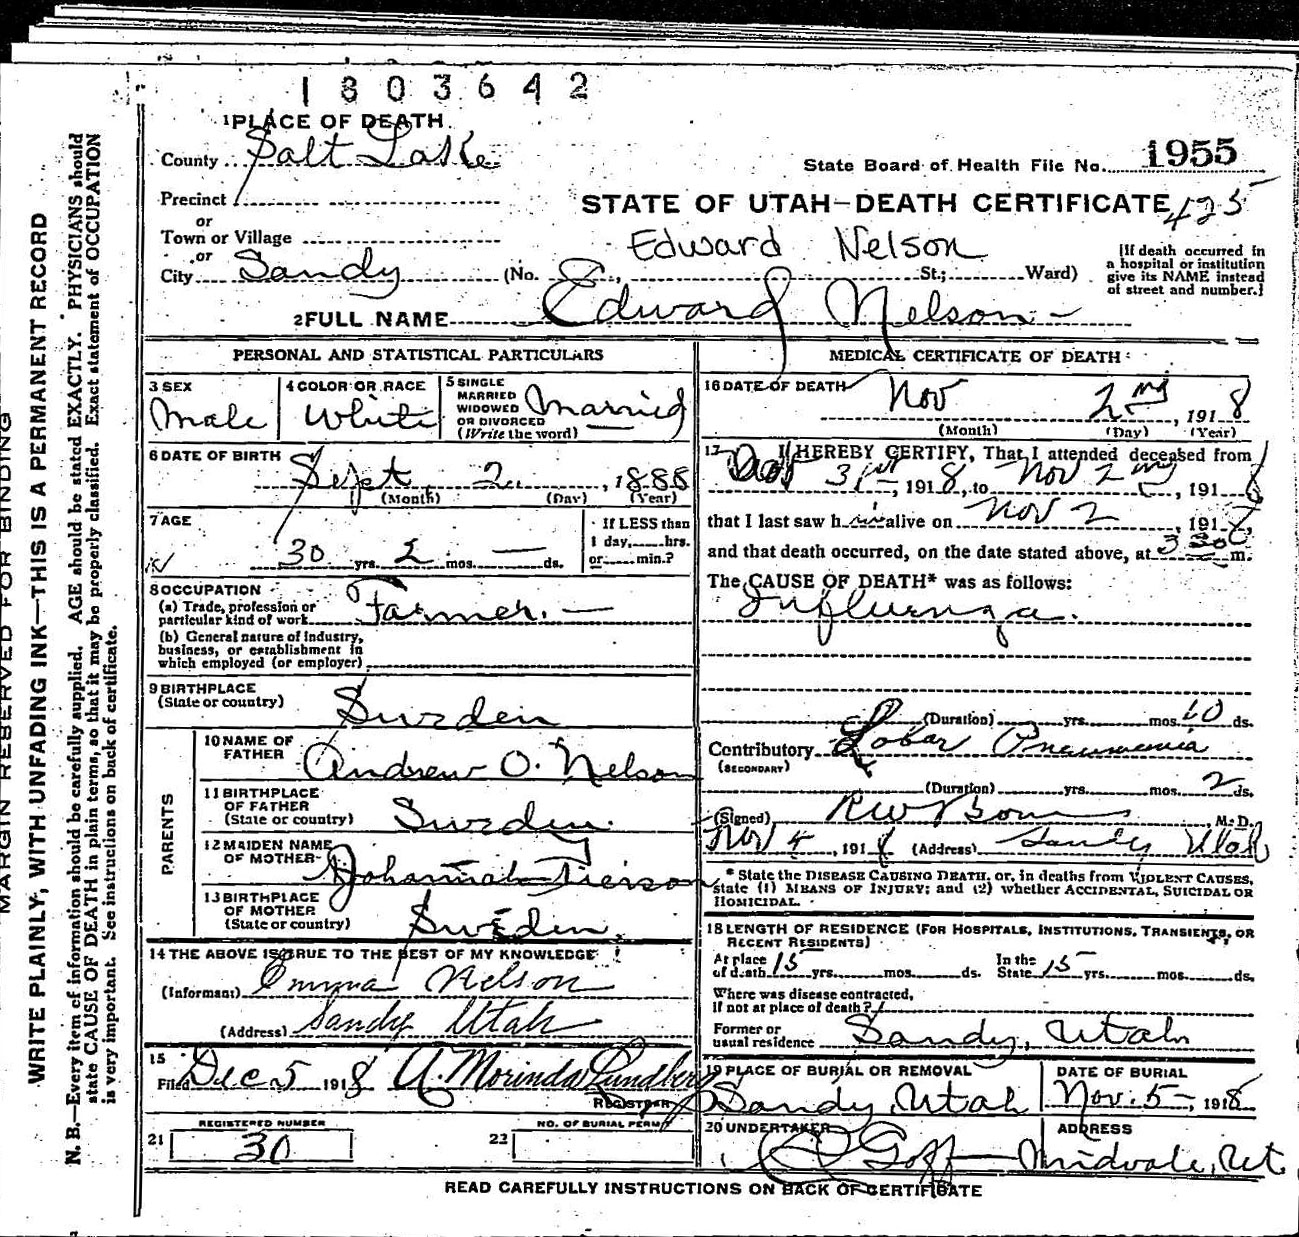 1803642
1PLACE OF DEATH
County Salt Lake
State Board of Health File No. 1955
Precinct
STATE OF UTAH—DEATH CERTIFICATE 425
or
Town or Village
or
Edward Nelson
City Sandy (No. St.; Ward)
[If death occurred in
a hospital or institution
give its NAME instead
of street and number.]
2FULL NAME Edward Nelson
PERSONAL AND STATISTICAL PARTICULARS
3 SEX
Male
4 COLOR OR RACE
White
5 SINGLE
MARRIED
WIDOWED
OR DIVORCED
(Write the word)
Married
6 DATE OF BIRTH
Sept 2, 1888
(Month) (Day) (Year)
7 AGE
30 yrs. 2 mos. — ds.
If LESS than
1 day, hrs.
or min.?
8 OCCUPATION
(a) Trade, profession or
particular kind of work Farmer. —
(b) General nature of industry,
business, or establishment in
which employed (or employer)
9 BIRTHPLACE
(State or country) Sweden
PARENTS
10 NAME OF
FATHER Andrew O. Nelson
11 BIRTHPLACE
OF FATHER
(State or country) Sweden.
12 MAIDEN NAME
OF MOTHER Johannah
13 BIRTHPLACE
OF MOTHER
(State or country) Sweden.
14 THE ABOVE IS TRUE TO THE BEST OF MY KNOWLEDGE
(Informant) Emma Nelson
(Address) Sandy Utah
15
Filed Dec 5 1918 A. Morinda Lundberg
REGISTRAR
REGISTERED NUMBER
21 30
NO. OF BURIAL PERMIT
22
MEDICAL CERTIFICATE OF DEATH
16 DATE OF DEATH
Nov 2nd, 1918
(Month) (Day) (Year)
17 I HEREBY CERTIFY, That I attended deceased from
Oct 31st, 1918, to Nov 2nd, 1918
that I last saw him alive on Nov 2, 1918,
and that death occurred, on the date stated above, at 3 m.
The CAUSE OF DEATH* was as follows:
Influenza.
(Duration) yrs. mos. 10 ds.
Contributory Lobar Pneumonia
(SECONDARY)
(Duration) yrs. mos. 2 ds.
(Signed) R W M. D.
Nov 4, 1918 (Address) Sandy Utah
* State the DISEASE CAUSING DEATH, or, in deaths from VIOLENT CAUSES,
state (1) MEANS OF INJURY; and (2) whether ACCIDENTAL, SUICIDAL OR
HOMICIDAL.
18 LENGTH OF RESIDENCE (FOR HOSPITALS, INSTITUTIONS, TRANSIENTS, OR
RECENT RESIDENTS)
At place
of death 15 yrs. mos. ds.
In the
State 15 yrs. mos. ds.
Where was disease contracted,
if not at place of death?
Former or
usual residence Sandy, Utah
19 PLACE OF BURIAL OR REMOVAL
Sandy, Utah
DATE OF BURIAL
Nov. 5 — 1918
20 UNDERTAKER
Goff —
ADDRESS
Midvale, Ut.
READ CAREFULLY INSTRUCTIONS ON BACK OF CERTIFICATE
MARGIN RESERVED FOR BINDING
WRITE PLAINLY, WITH UNFADING INK—THIS IS A PERMANENT RECORD
N. B.—Every item of information should be carefully supplied. AGE should be stated EXACTLY. PHYSICIANS should
state CAUSE OF DEATH in plain terms, so that it may be properly classified. Exact statement of OCCUPATION
is very important. See instructions on back of certificate.